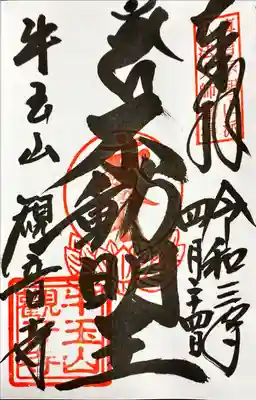 奉拝
令和三年
四月二十四日
不動明王
牛玉山 観音寺
牛玉山
觀音寺